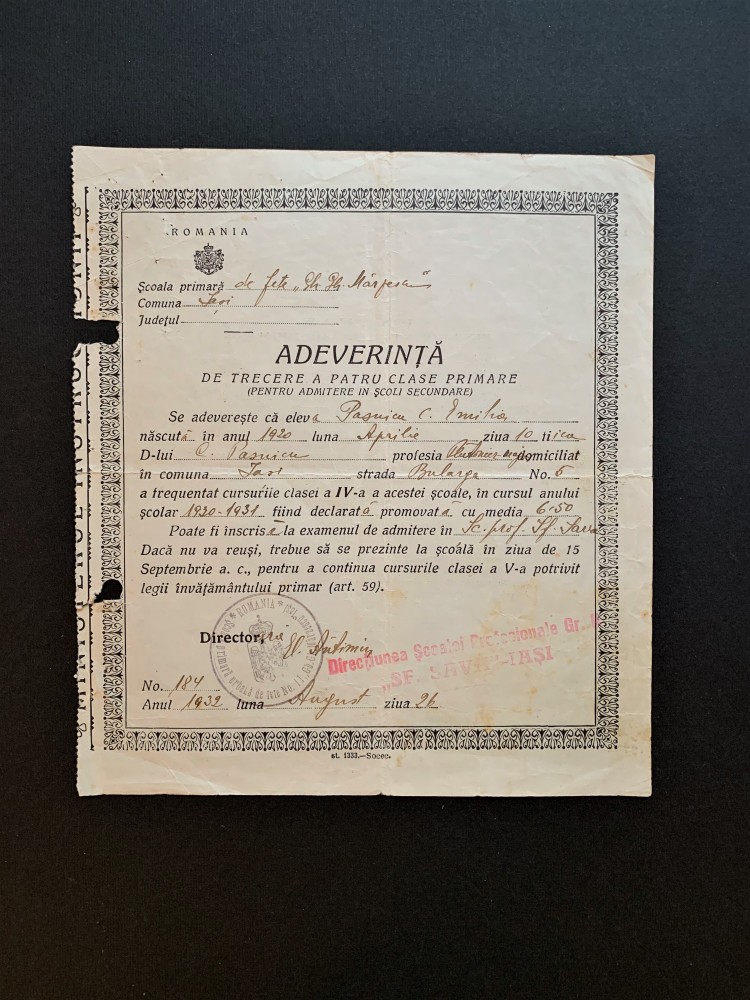 ROMANIA
Școala primară de fete „Gh. Gh. Mârzescu"
Comuna Iași
Județul
ADEVERINȚĂ
DE TRECERE A PATRU CLASE PRIMARE
(PENTRU ADMITERE IN ȘCOLI SECUNDARE)
Se adeverește că eleva Pasnicu C. Emilia
născută in anul 1920 luna Aprilie ziua 10 fiica
D-lui C. Pasnicu profesia domiciliat
în comuna Iasi strada Bularga No. 6
a frequentat cursurile clasei a IV-a a acestei școale, în cursul anului
școlar 1930-1931 fiind declarată promovată cu media 6.50
Poate fi inscrisă la examenul de admitere în Sc. prof. Sf. Sava
Dacă nu va reuși, trebue să se prezinte la școală în ziua de 15
Septembrie a. c., pentru a continua cursurile clasei a V-a potrivit
legii învățământului primar (art. 59).
Director,
Direcțiunea Școalei Profesionale Gr. II
„SF. SAVA" IAȘI
No. 184
Anul 1932 luna August ziua 26
st. 1333.—Socec.